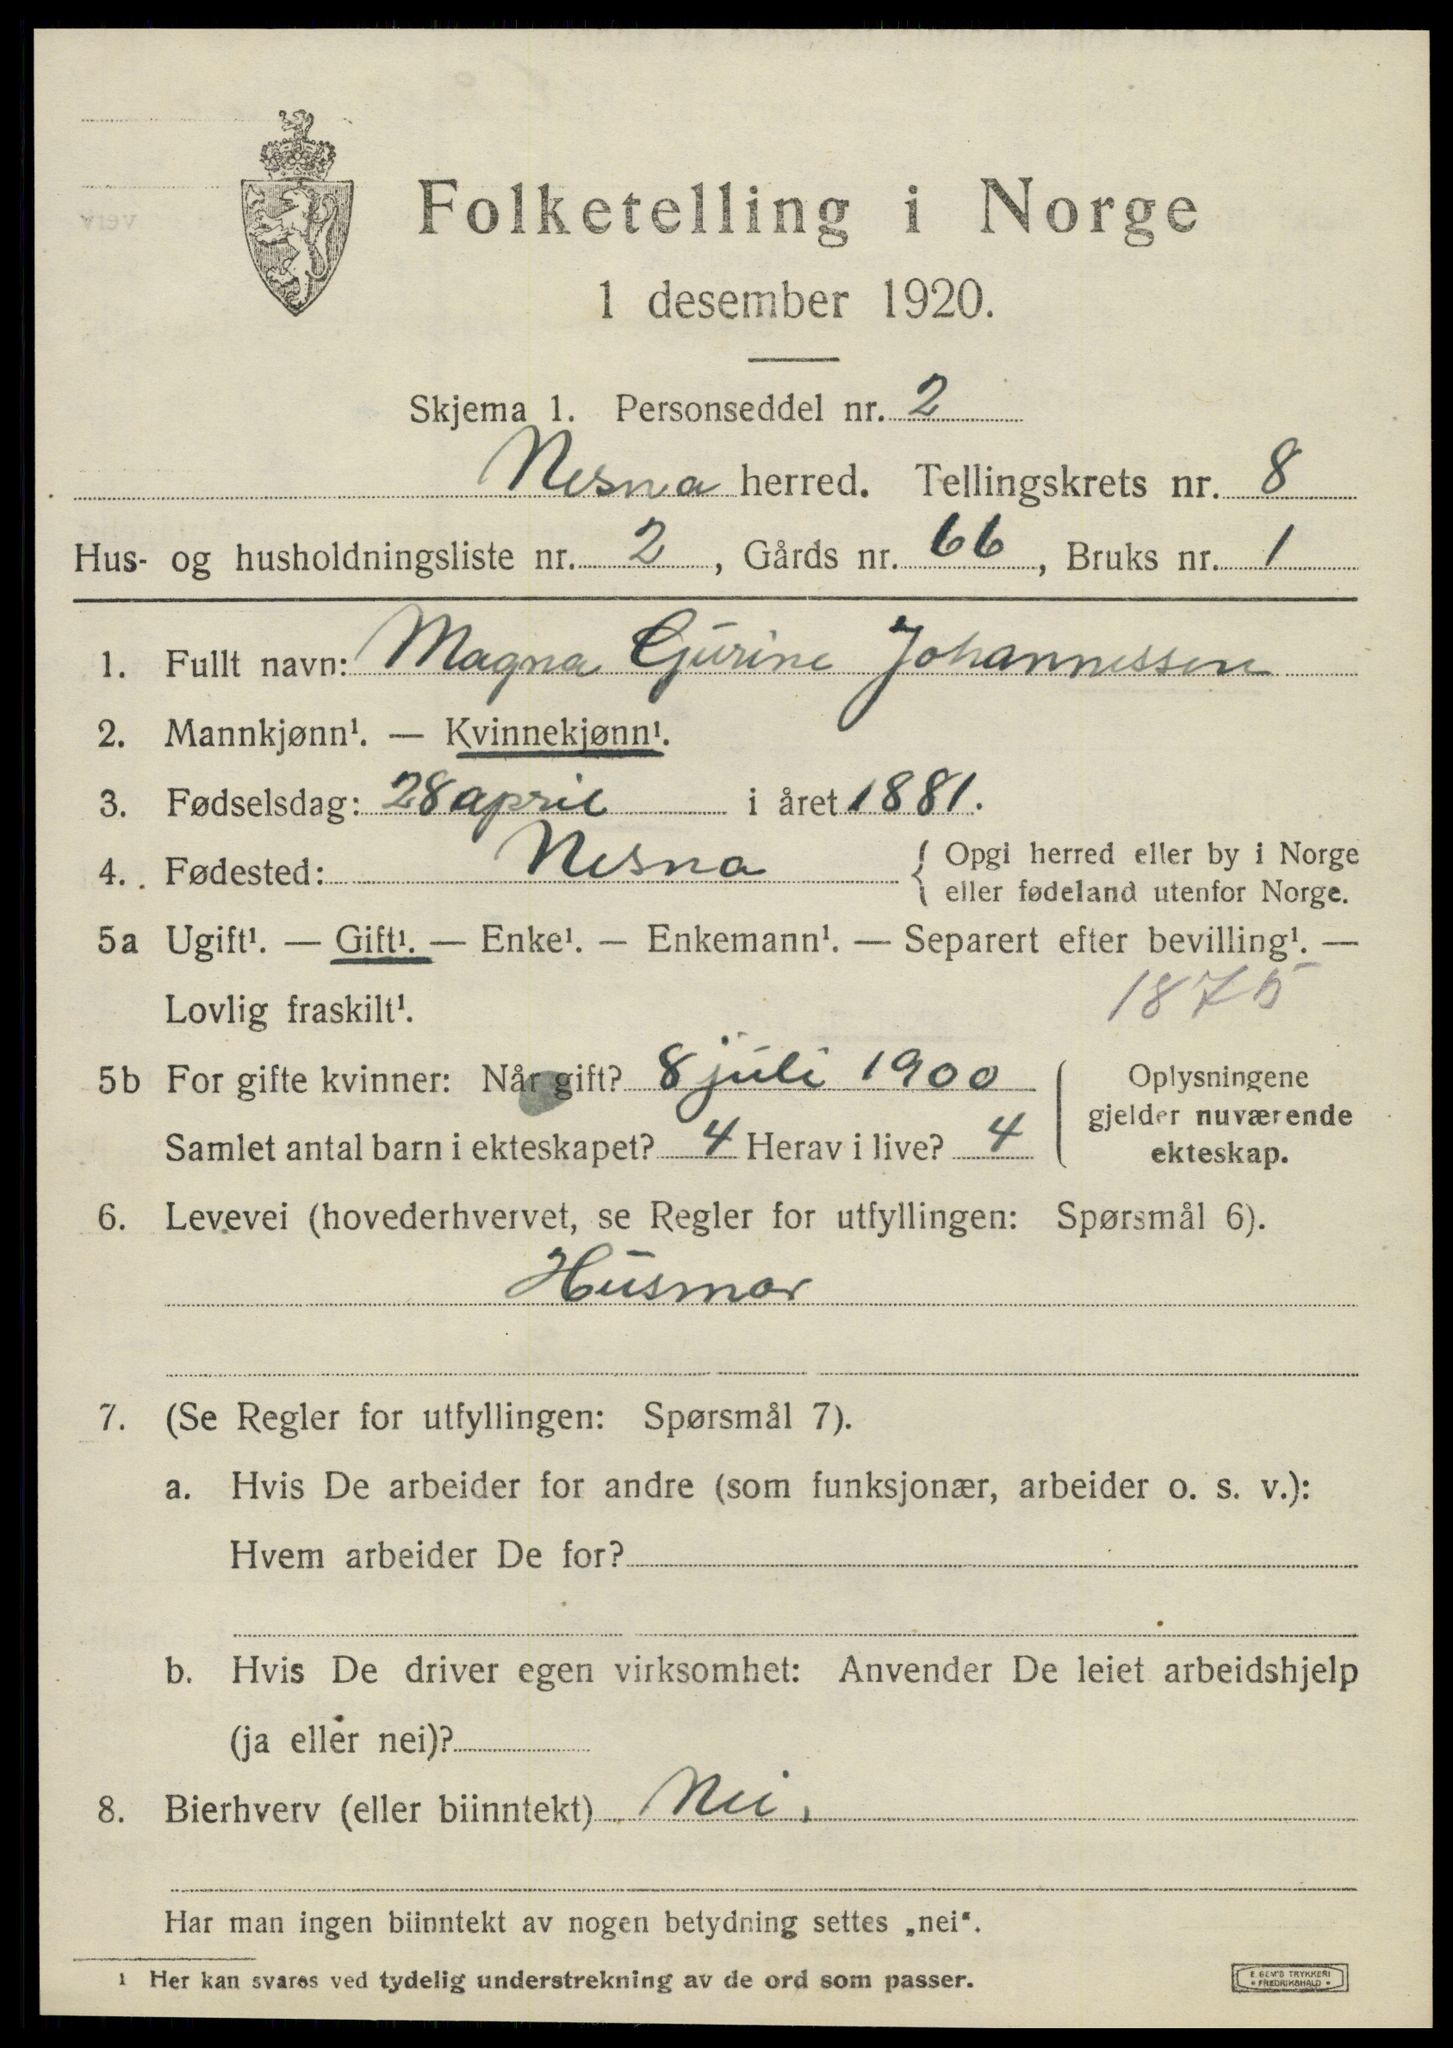 Folketelling i Norge
1 desember 1920.
Skjema 1. Personseddel nr. 2
Nesna herred. Tellingskrets nr. 8
Hus- og husholdningsliste nr. 2, Gårds nr. 66, Bruks nr. 1
1. Fullt navn: Magna Gurine Johannessen
2. Mannkjønn¹. — Kvinnekjønn¹.
3. Fødselsdag: 28 april i året 1881.
4. Fødested: Nesna { Opgi herred eller by i Norge
eller fødeland utenfor Norge.
5a Ugift¹. — Gift¹. — Enke¹. — Enkemann¹. — Separert efter bevilling¹. —
Lovlig fraskilt¹. 1875
5b For gifte kvinner: Når gift? 8 juli 1900
Samlet antal barn i ekteskapet? 4 Herav i live? 4
Oplysningene
gjelder nuværende
ekteskap.
6. Levevei (hovederhvervet, se Regler for utfyllingen: Spørsmål 6).
Husmor
7. (Se Regler for utfyllingen: Spørsmål 7).
a. Hvis De arbeider for andre (som funksjonær, arbeider o. s. v.):
Hvem arbeider De for?
b. Hvis De driver egen virksomhet: Anvender De leiet arbeidshjelp
(ja eller nei)?
8. Bierhverv (eller biinntekt) Nei.
Har man ingen biinntekt av nogen betydning settes „nei“.
¹ Her kan svares ved tydelig understrekning av de ord som passer.
E. SEM'S TRYKKERI
• FREDRIKSHALD •